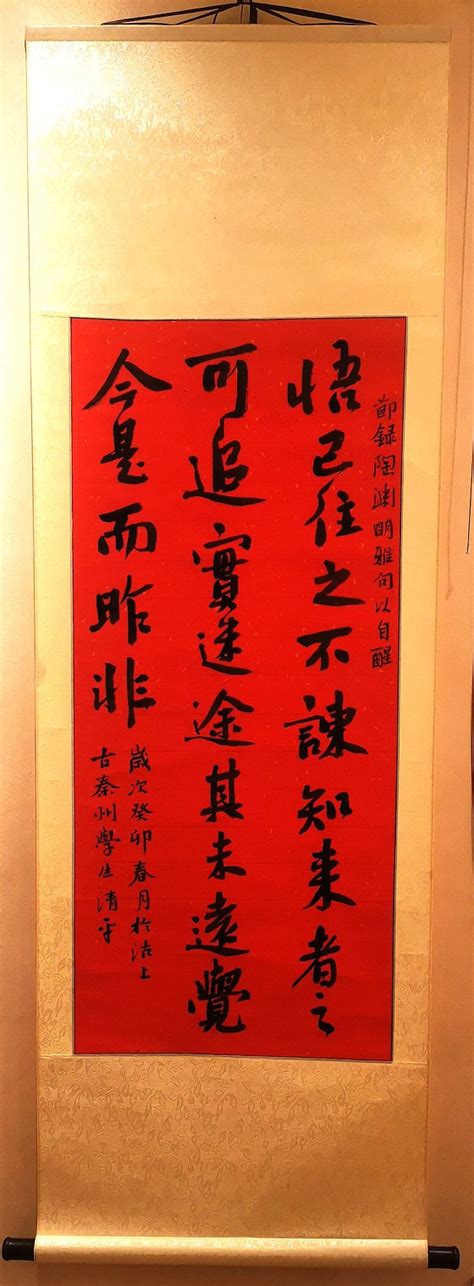 節録陶渊明雅句以自醒
悟已往之不諫知来者之
可追實迷途其未遠覺
今是而昨非
歲次癸卯春月於沽上
古秦州學生清平